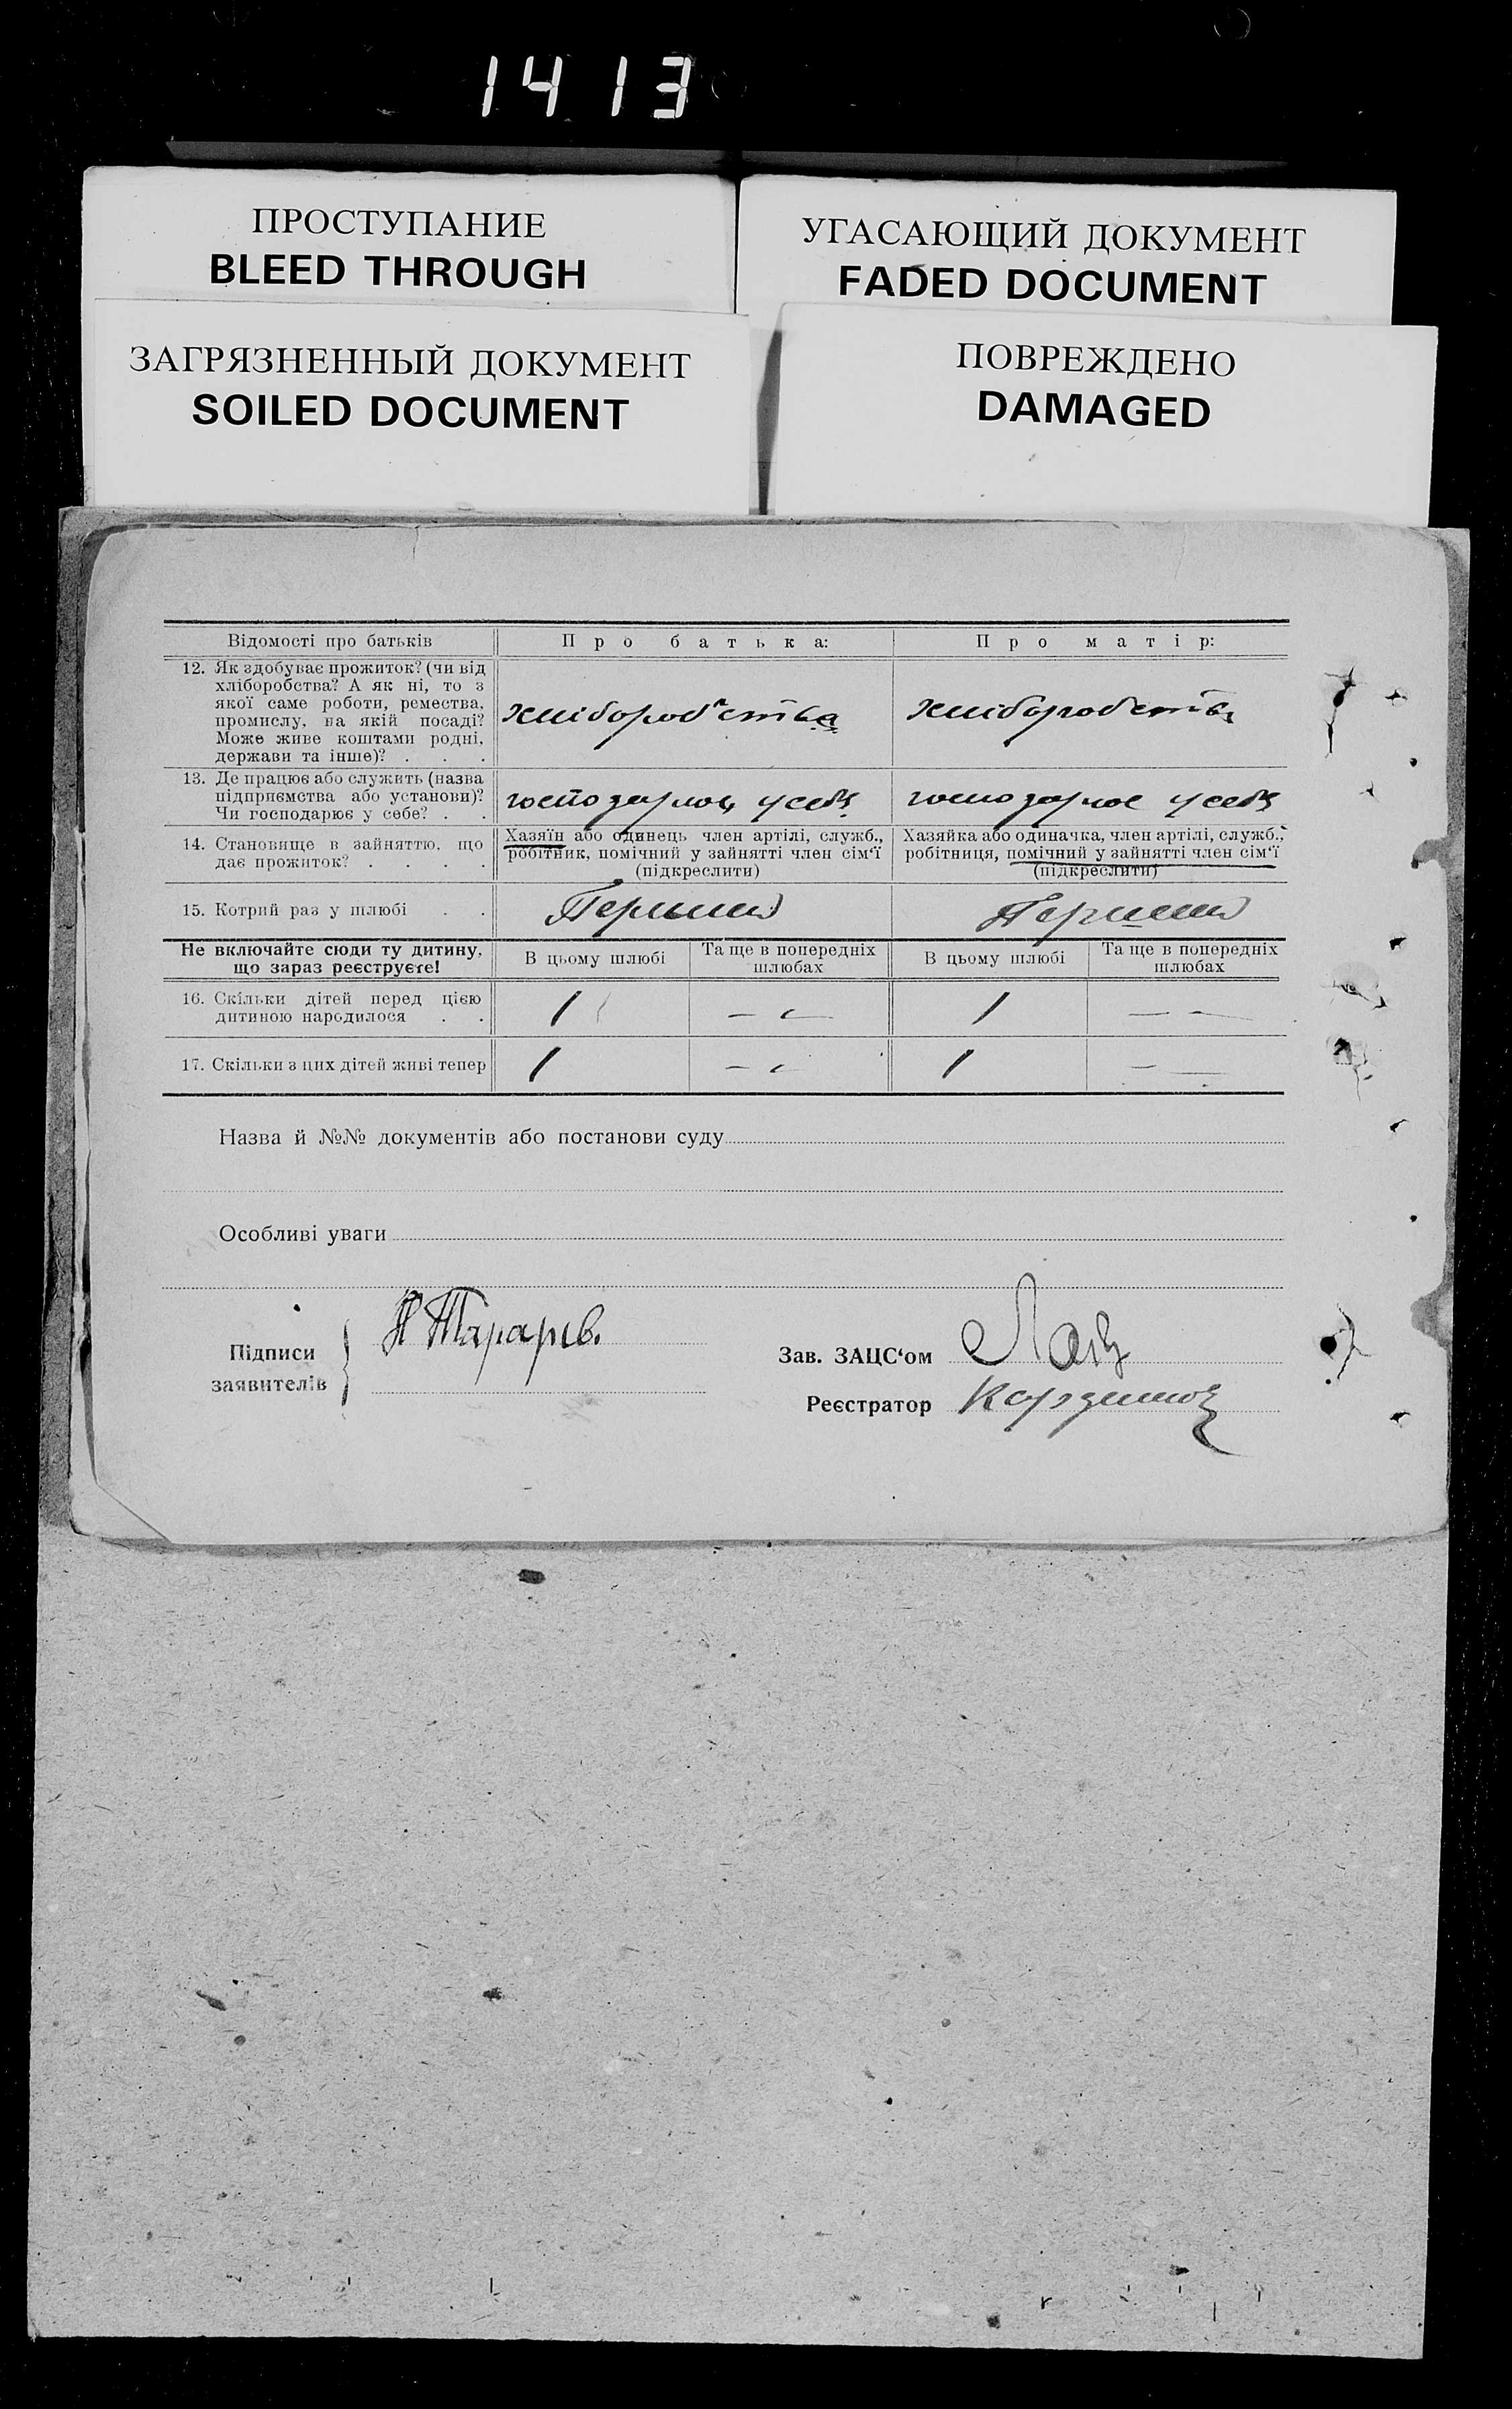 1413
ПРОСТУПАНИЕ
BLEED THROUGH
УГАСАЮЩИЙ ДОКУМЕНТ
FADED DOCUMENT
ЗАГРЯЗНЕННЫЙ ДОКУМЕНТ
SOILED DOCUMENT
ПОВРЕЖДЕНО
DAMAGED
Відомості про батьків
Про батька:
Про матір:
12. Як здобуває прожиток? (чи від
хліборобства? А як ні, то з
якої саме роботи, ремества,
промислу, на якій посаді?
Може живе коштами родні,
держави та інше)? . . .
хліборобства
хліборобства
13. Де працює або служить (назва
підприємства або установи)?
Чи господарює у себе? . .
господарює у себя
господарює у себя
14. Становище в зайняттю, що
дає прожиток? . . . .
Хазяїн або одинець член артілі, служб.,
робітник, помічний у зайнятті член сім'ї
(підкреслити)
Хазяйка або одиначка, член артілі, служб.,
робітниця, помічний у зайнятті член сім'ї
(підкреслити)
15. Котрий раз у шлюбі . .
Первий
Перший
Не включайте сюди ту дитину,
що зараз реєструєте!
В цьому шлюбі
Та ще в попередніх
шлюбах
В цьому шлюбі
Та ще в попередніх
шлюбах
16. Скільки дітей перед цією
дитиною народилося . .
1
—
1
—
17. Скільки з цих дітей живі тепер
1
—
1
—
Назва й №№ документів або постанови суду
Особливі уваги
Підписи
заявителів
Зав. ЗАЦС'ом
Реєстратор